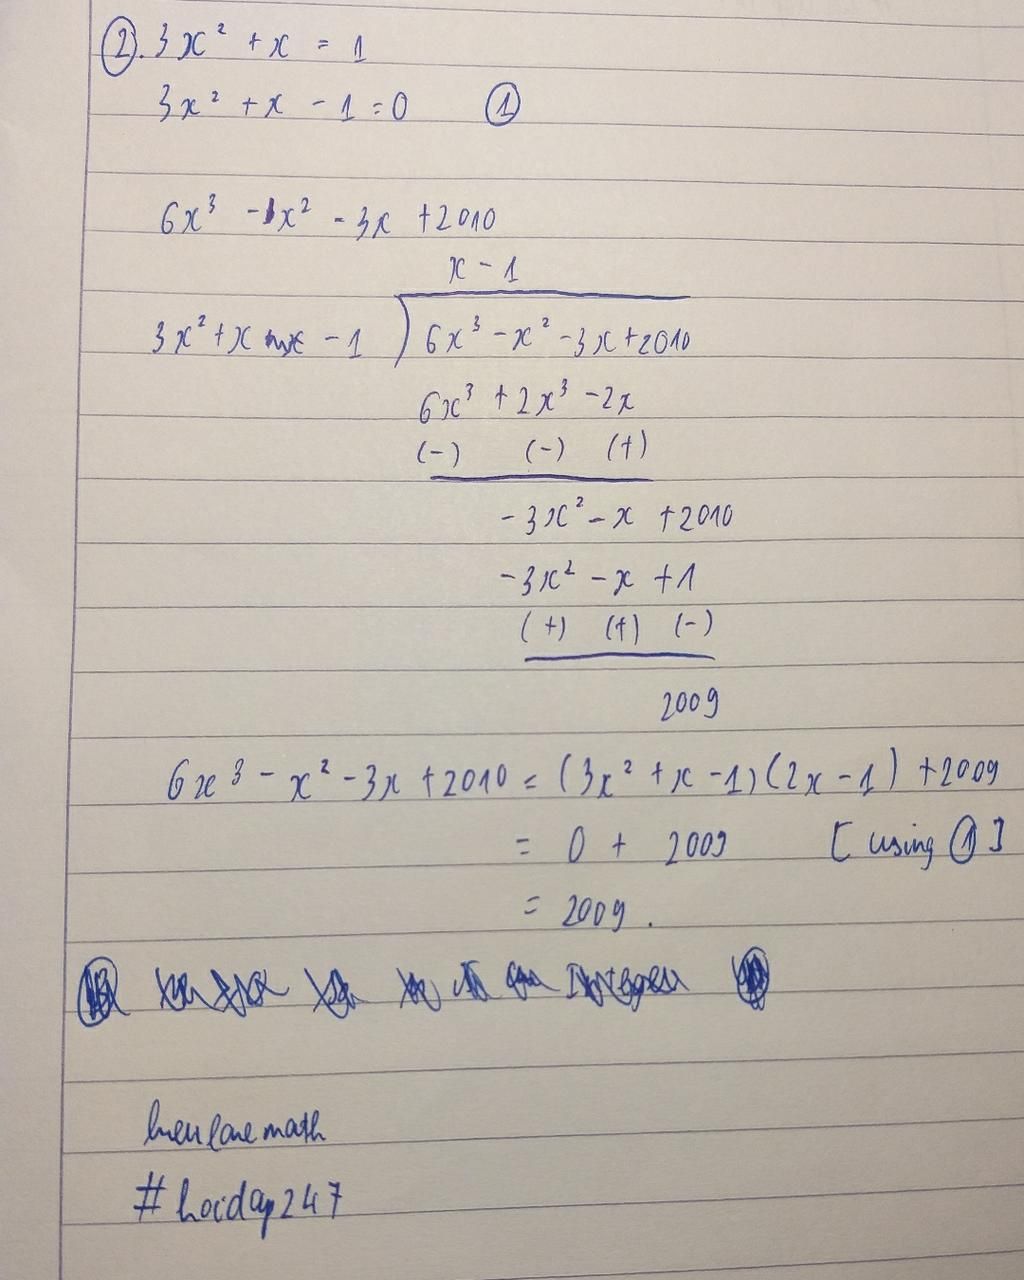 ②. 3x² + x = 1
3x² + x - 1 = 0 ①
6x³ - 1x² - 3x + 2010
x - 1
3x² + x - 1 ) 6x³ - x² - 3x + 2010
6x³ + 2x³ - 2x
(-) (-) (+)
- 3x² - x + 2010
- 3x² - x + 1
(+) (+) (-)
2009
6x³ - x² - 3x + 2010 = (3x² + x - 1)(2x - 1) + 2009
= 0 + 2009 [using ①]
= 2009.
math
#hoidap247